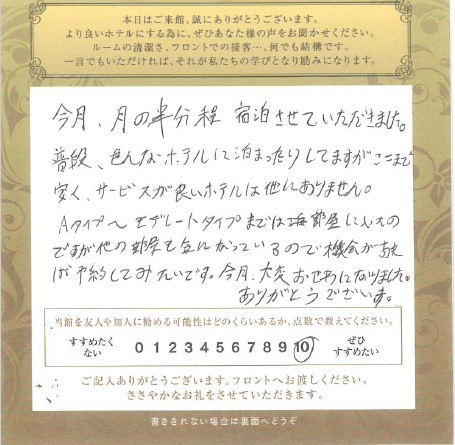 本日はご来館、誠にありがとうございます。
より良いホテルにする為に、ぜひあなた様の声をお聞かせください。
ルームの清潔さ、フロントでの接客…、何でも結構です。
一言でもいただければ、それが私たちの学びとなり励みになります。
今月、月の半分程 宿泊させていただきました。
普段、色んなホテルに泊まったりしてますがここまで
安く、サービスが良いホテルは他にありません。
Aタイプ〜モデレートタイプまでは毎部屋に入ったの
ですが他の部屋も気になっているので機会があれ
ば予約してみたいです。今月、大変おせわになりました。
ありがとうございます。
当館を友人や知人に勧める可能性はどのくらいあるか、点数で教えてください。
すすめたくない 0 1 2 3 4 5 6 7 8 9 10 ぜひすすめたい
ご記入ありがとうございます。フロントへお渡しください。
ささやかなお礼をさせていただきます。
書ききれない場合は裏面へどうぞ